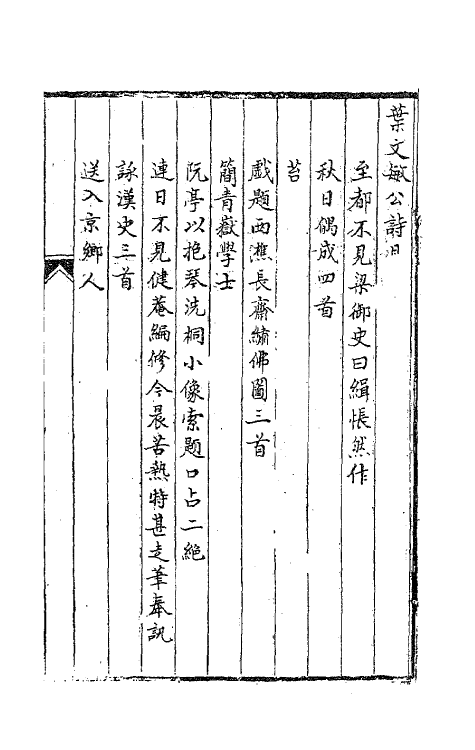 葉文敏公詩
至都不見梁御史曰緝悵然作
秋日偶成四首
苔
戲題西樵長齋繡佛圖三首
簡青嶽學士
阮亭以抱琴洗桐小像索題口占二絕
連日不見健菴編修今晨苦熱特甚走筆奉訊
詠漢史三首
送入京鄉人